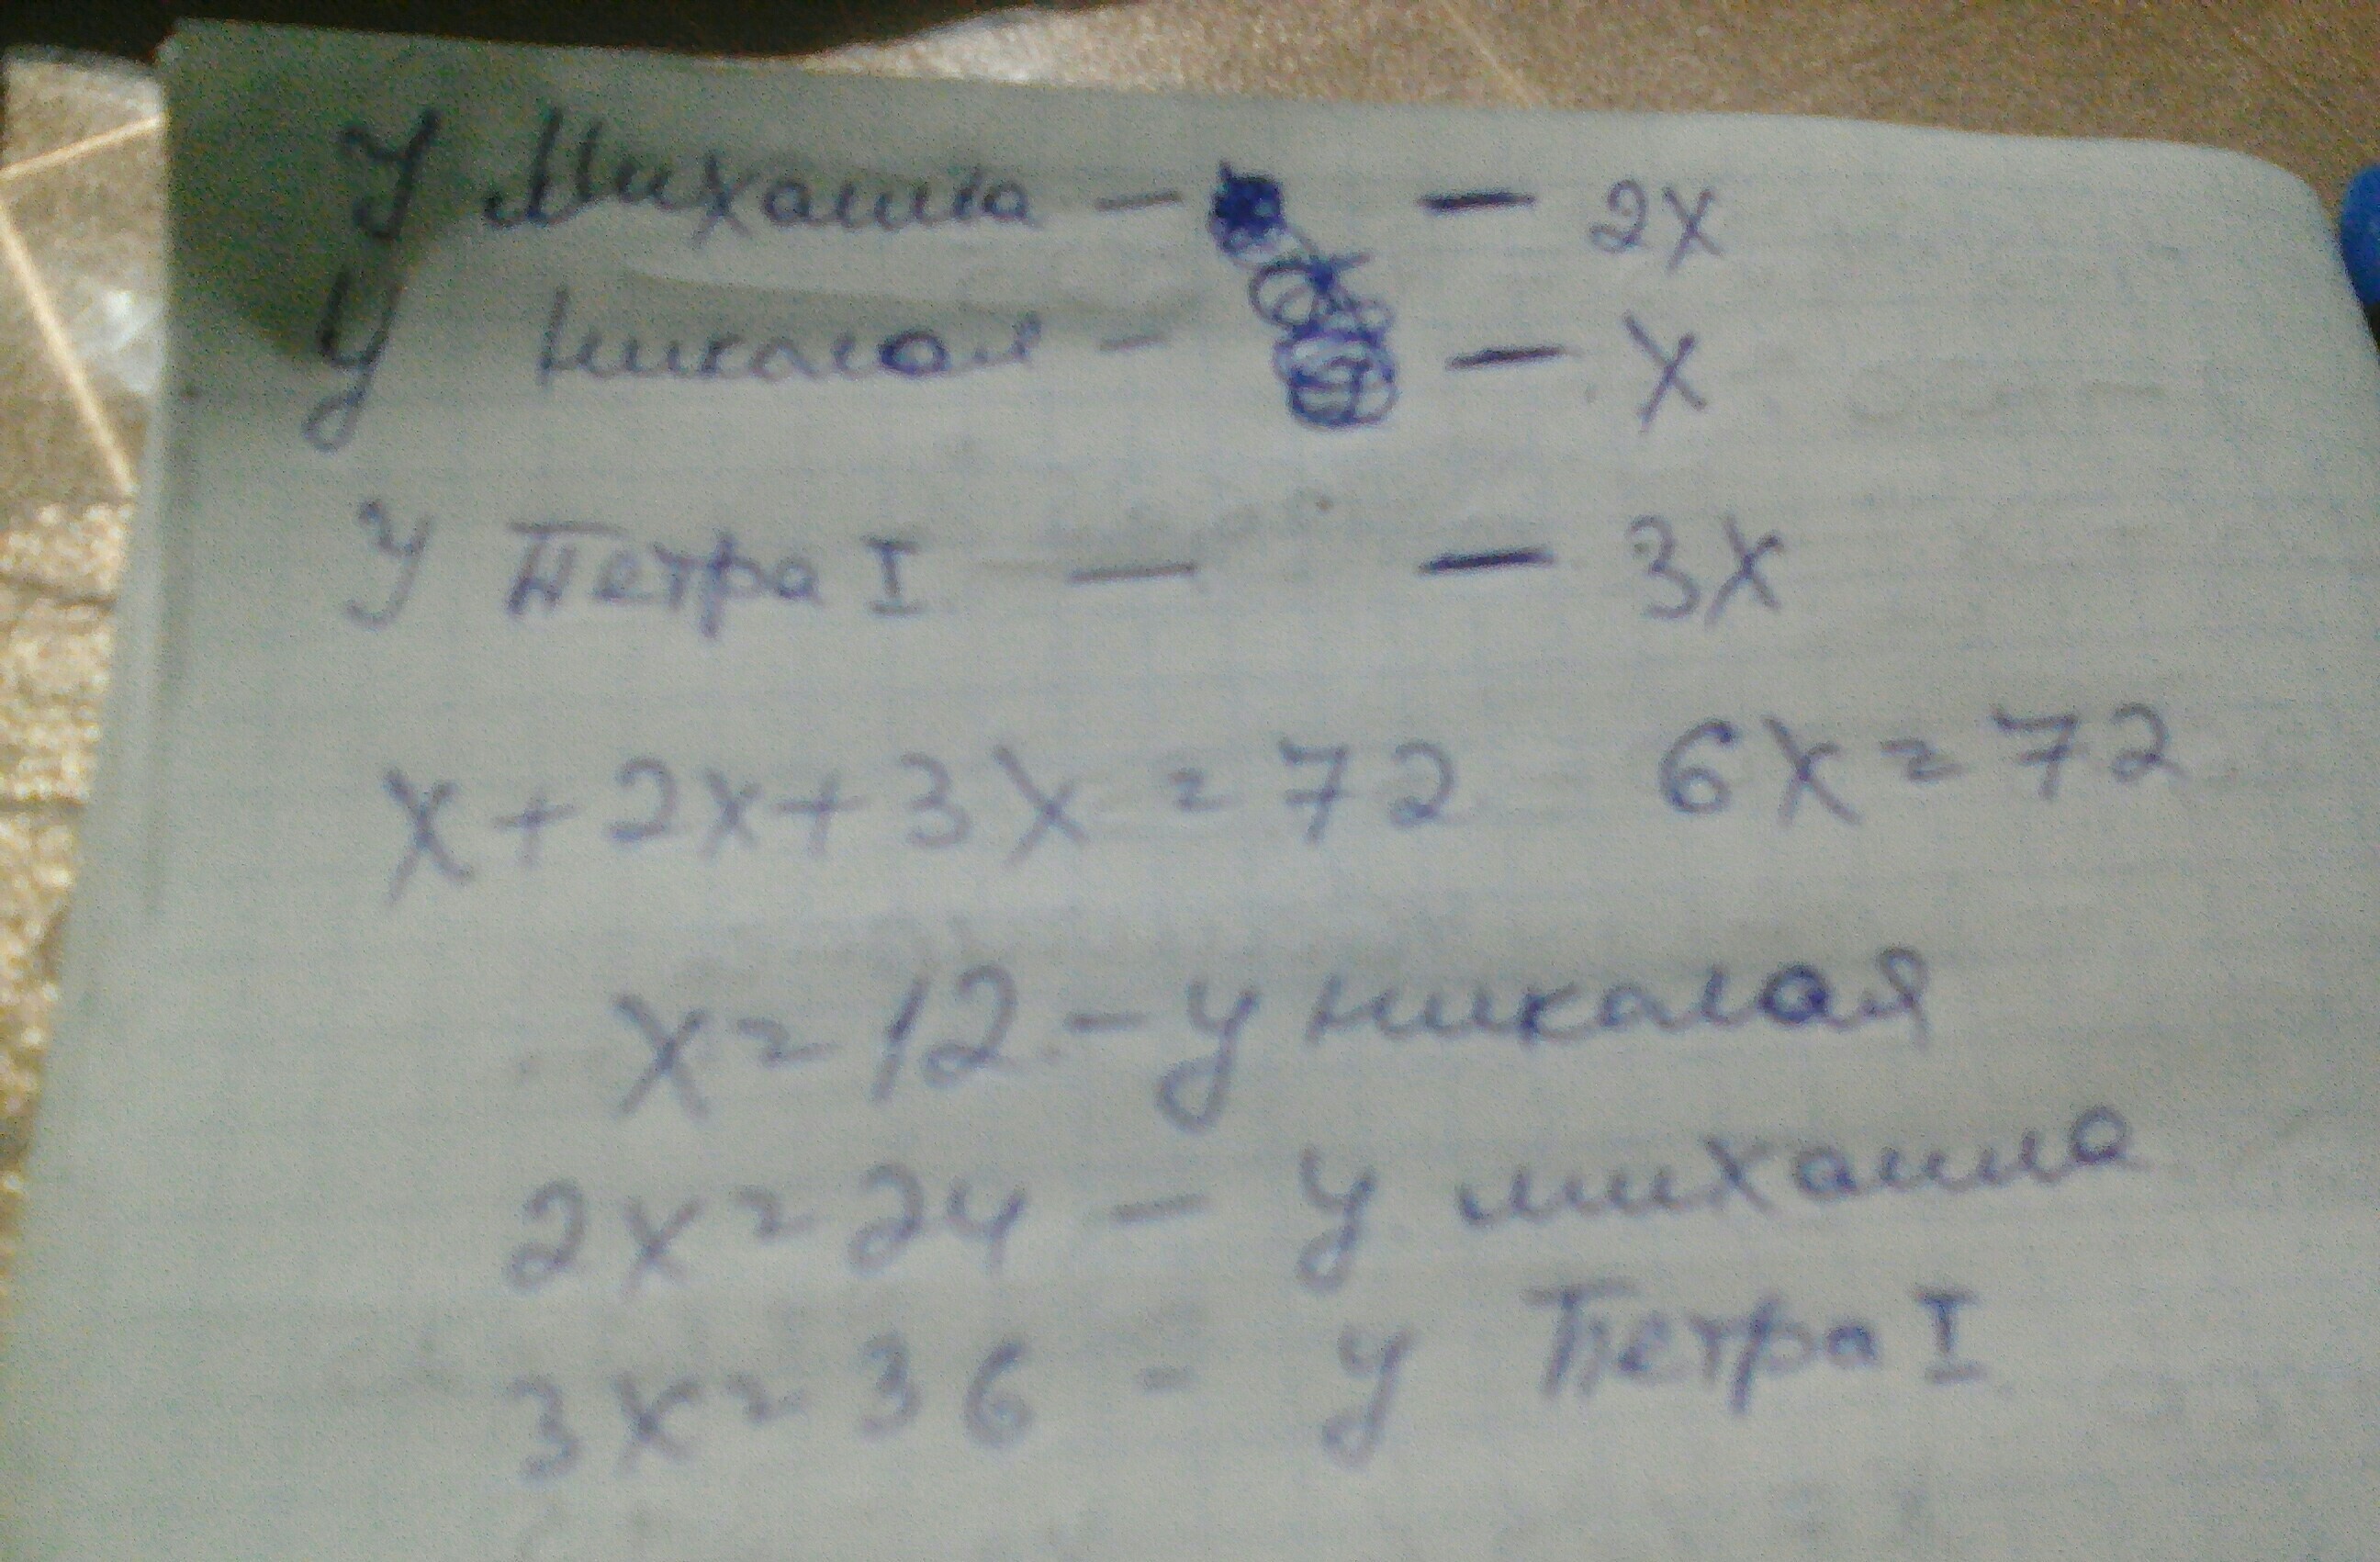 У Михаила - - 2x
У николая - - x
У Петра I - - 3x
x+2x+3x=72 6x=72
x=12-у николая
2x=24 - у михаила
3x=36 - у Петра I